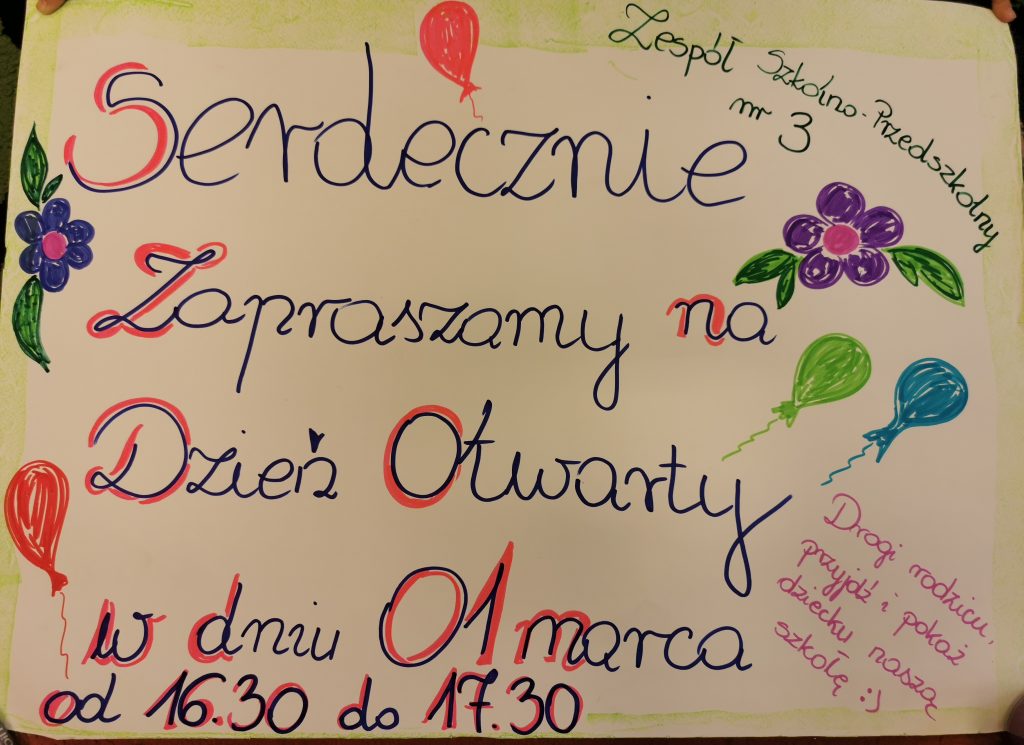 Zespół Szkolno-Przedszkolny
nr 3
Serdecznie
Zapraszamy na
Dzień Otwarty
w dniu 01 marca
od 16.30 do 17.30
Drogi rodzicu,
przyjdź i pokaż
dziecku naszą
szkołę :)